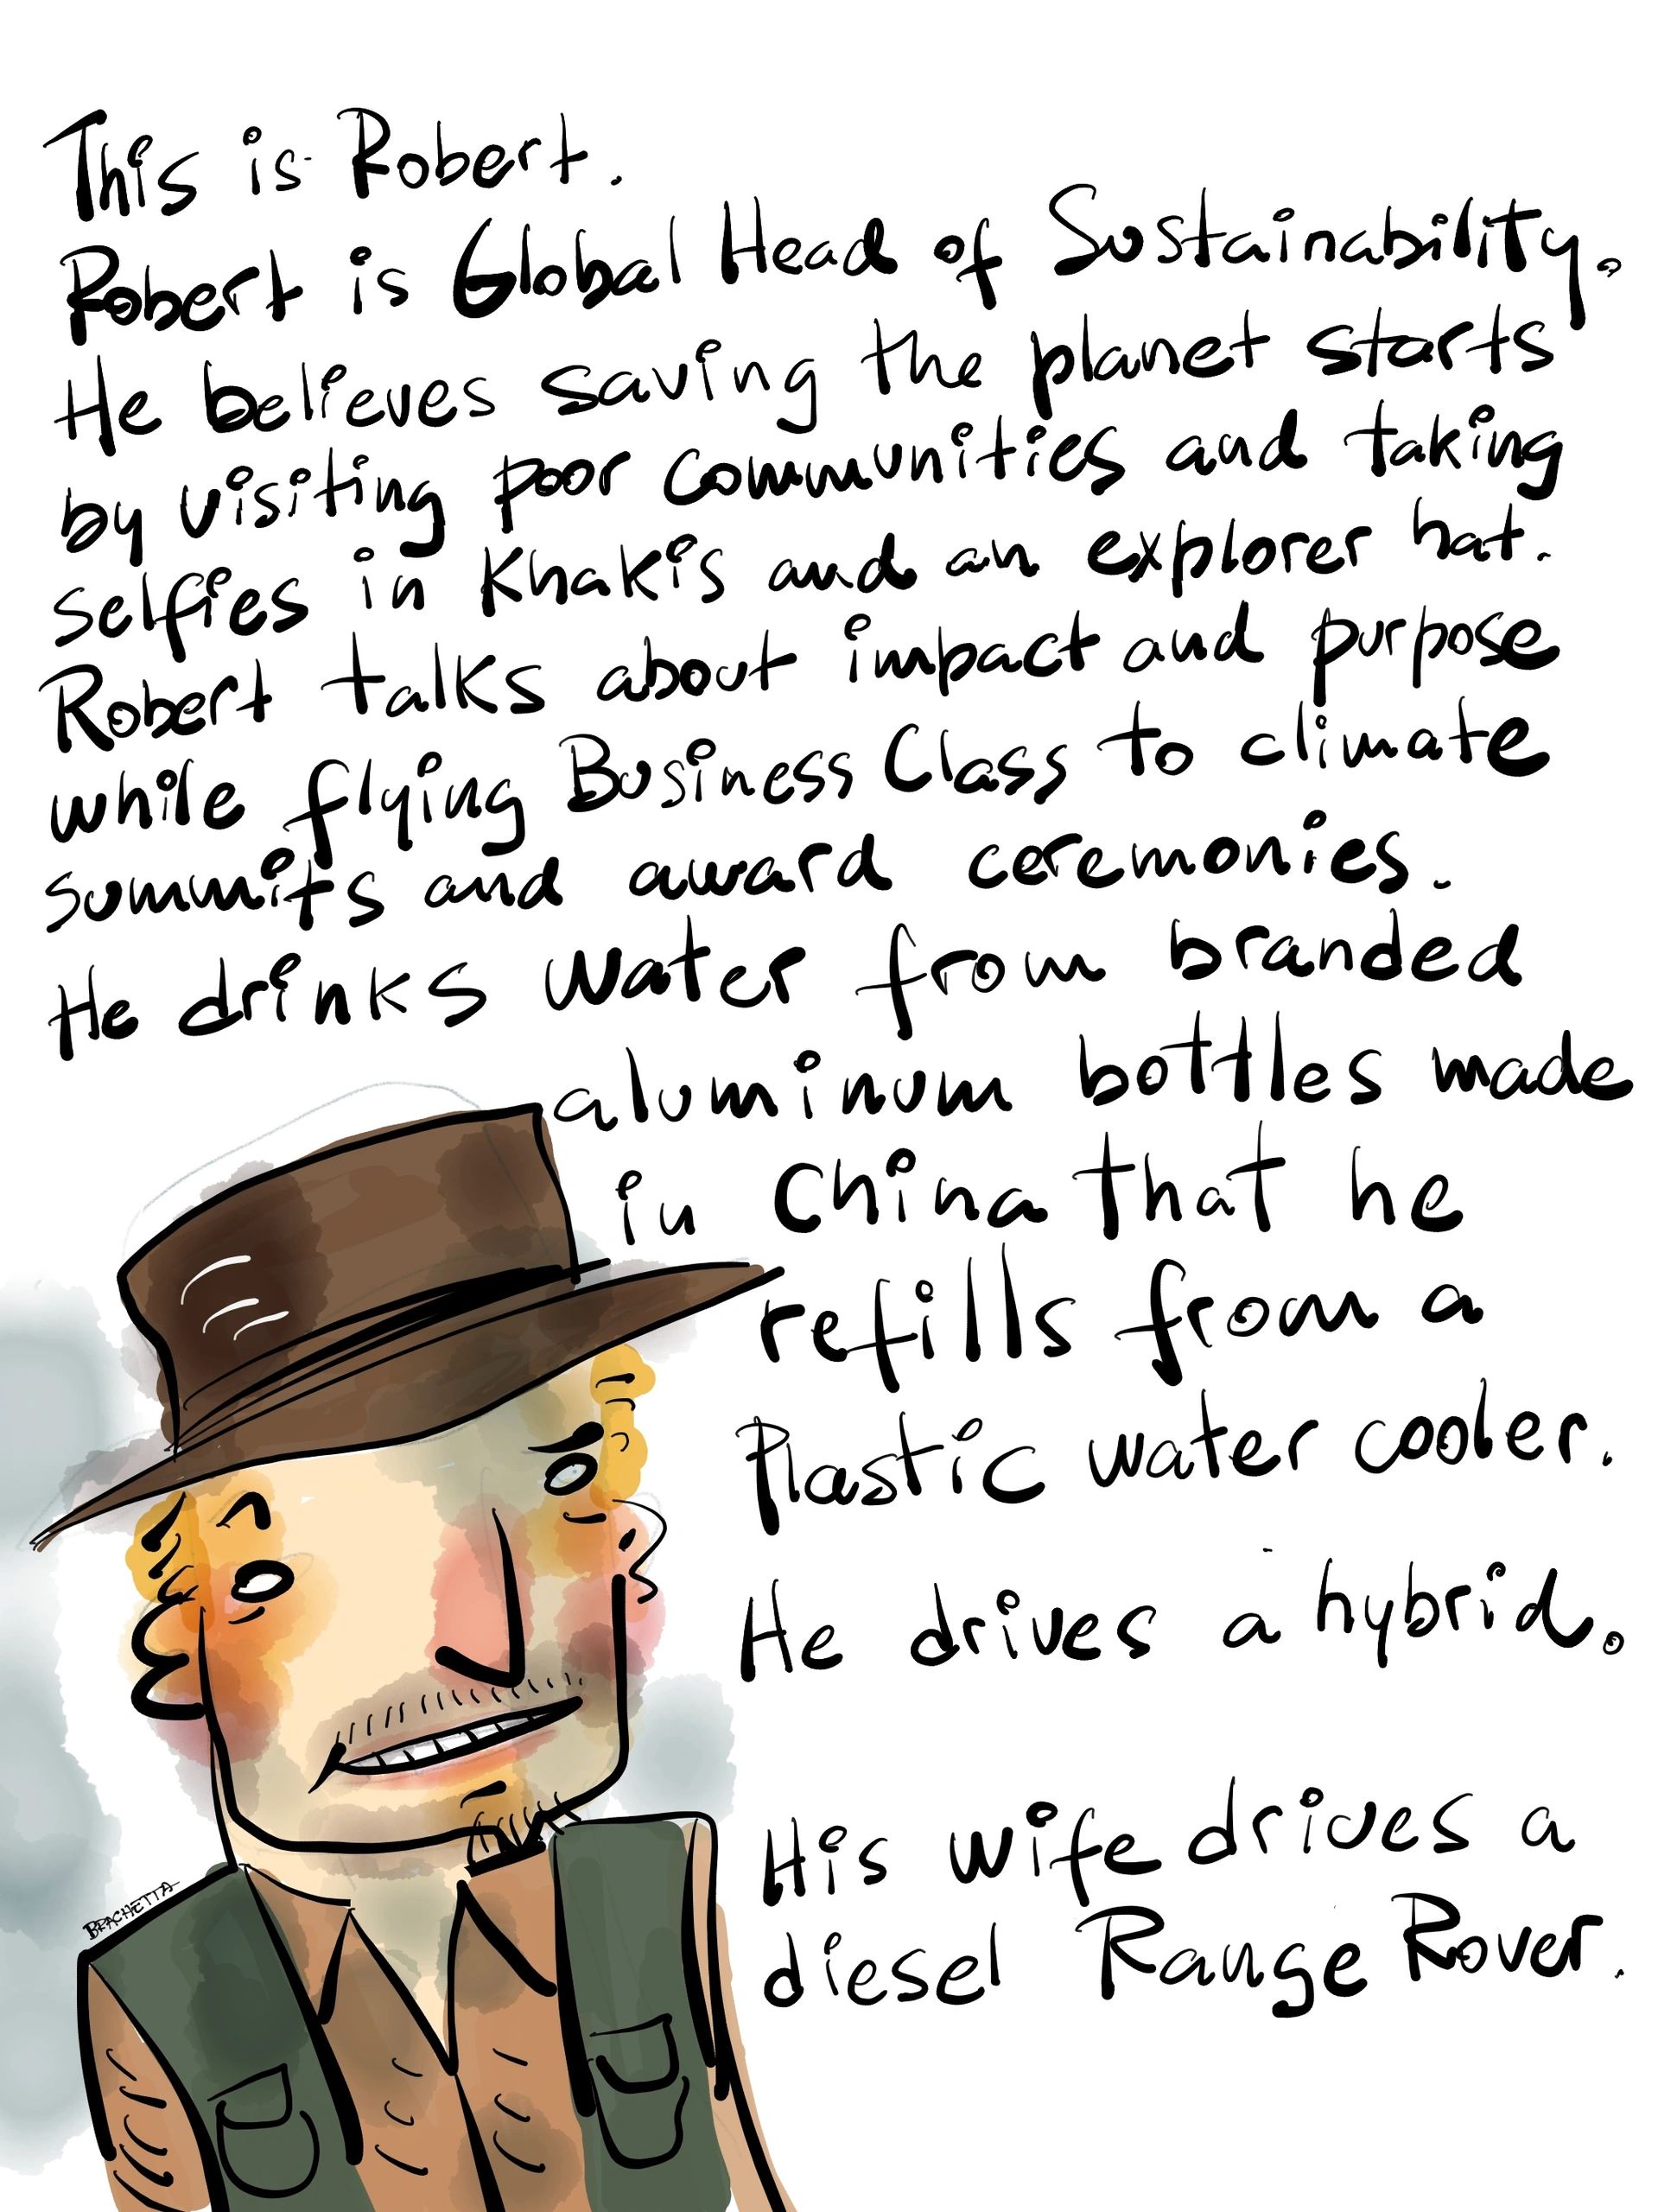 This is Robert.
Robert is Global Head of Sustainability.
He believes saving the planet starts
by visiting poor communities and taking
selfies in Khakis and an explorer hat.
Robert talks about impact and purpose
while flying Business Class to climate
summits and award ceremonies.
He drinks water from branded
aluminum bottles made
in China that he
refills from a
Plastic water cooler.
He drives a hybrid.
His wife drives a
diesel Range Rover.
BRACHETTA